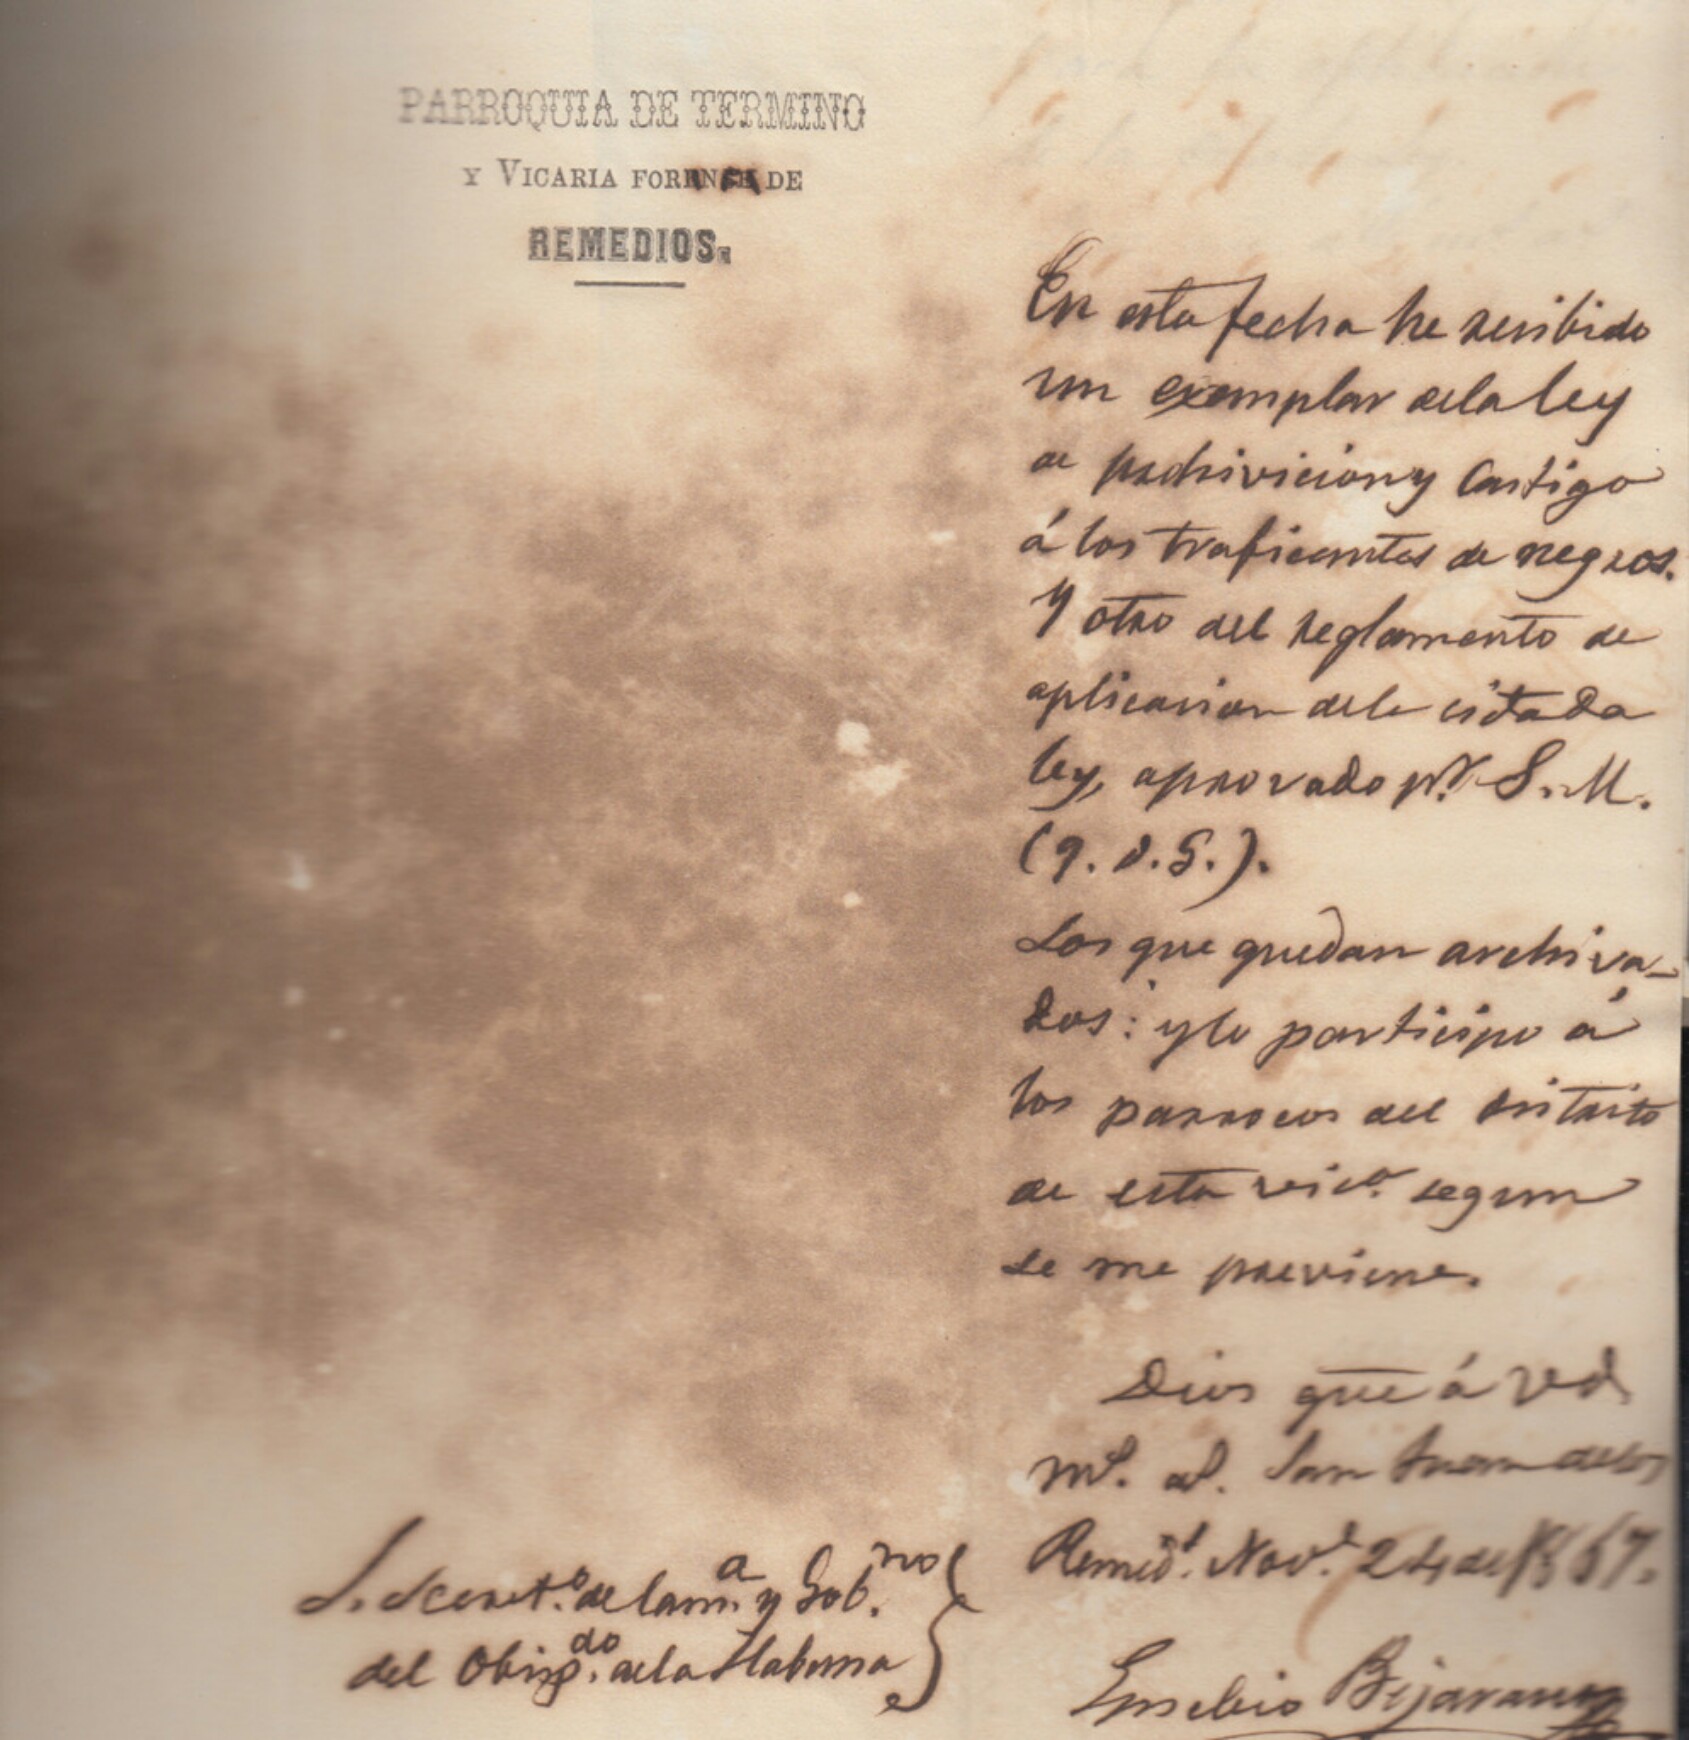 PARROQUIA DE TERMINO
Y VICARIA FORENSE DE
REMEDIOS.
En esta fecha he resibido
un exemplar dela ley
de prohivicion y Castigo
á los traficantes de negros.
Y otro del reglamento de
aplicasion dela citada
ley, aprovado pr. S. M.
(q. D. G.).
Los que quedan archiva-
dos: y lo participo á
los parrocos del distrito
de esta vica. segun
se me previene.
Dios gue á Vd.
ms. as. San Juan delos
Remeds. Nove. 24 de 1867.
Eusebio Bejarano
S. Secreto. de Cama. y Gobno.
del Obispdo. dela Habana